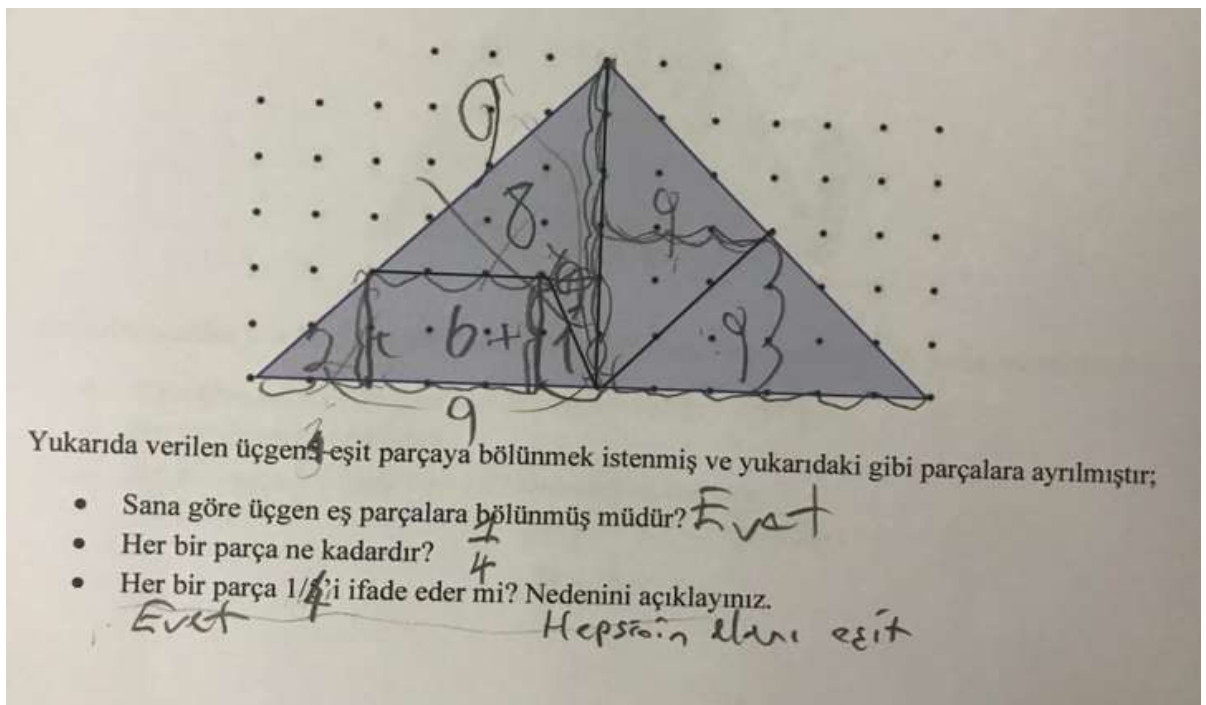 9
8
9
9
2 + 6 + 1
9
9
Yukarıda verilen üçgen 4 eşit parçaya bölünmek istenmiş ve yukarıdaki gibi parçalara ayrılmıştır;
• Sana göre üçgen eş parçalara bölünmüş müdür? Evet
• Her bir parça ne kadardır? 1/4
• Her bir parça 1/4'i ifade eder mi? Nedenini açıklayınız.
Evet Hepsinin alanı eşit